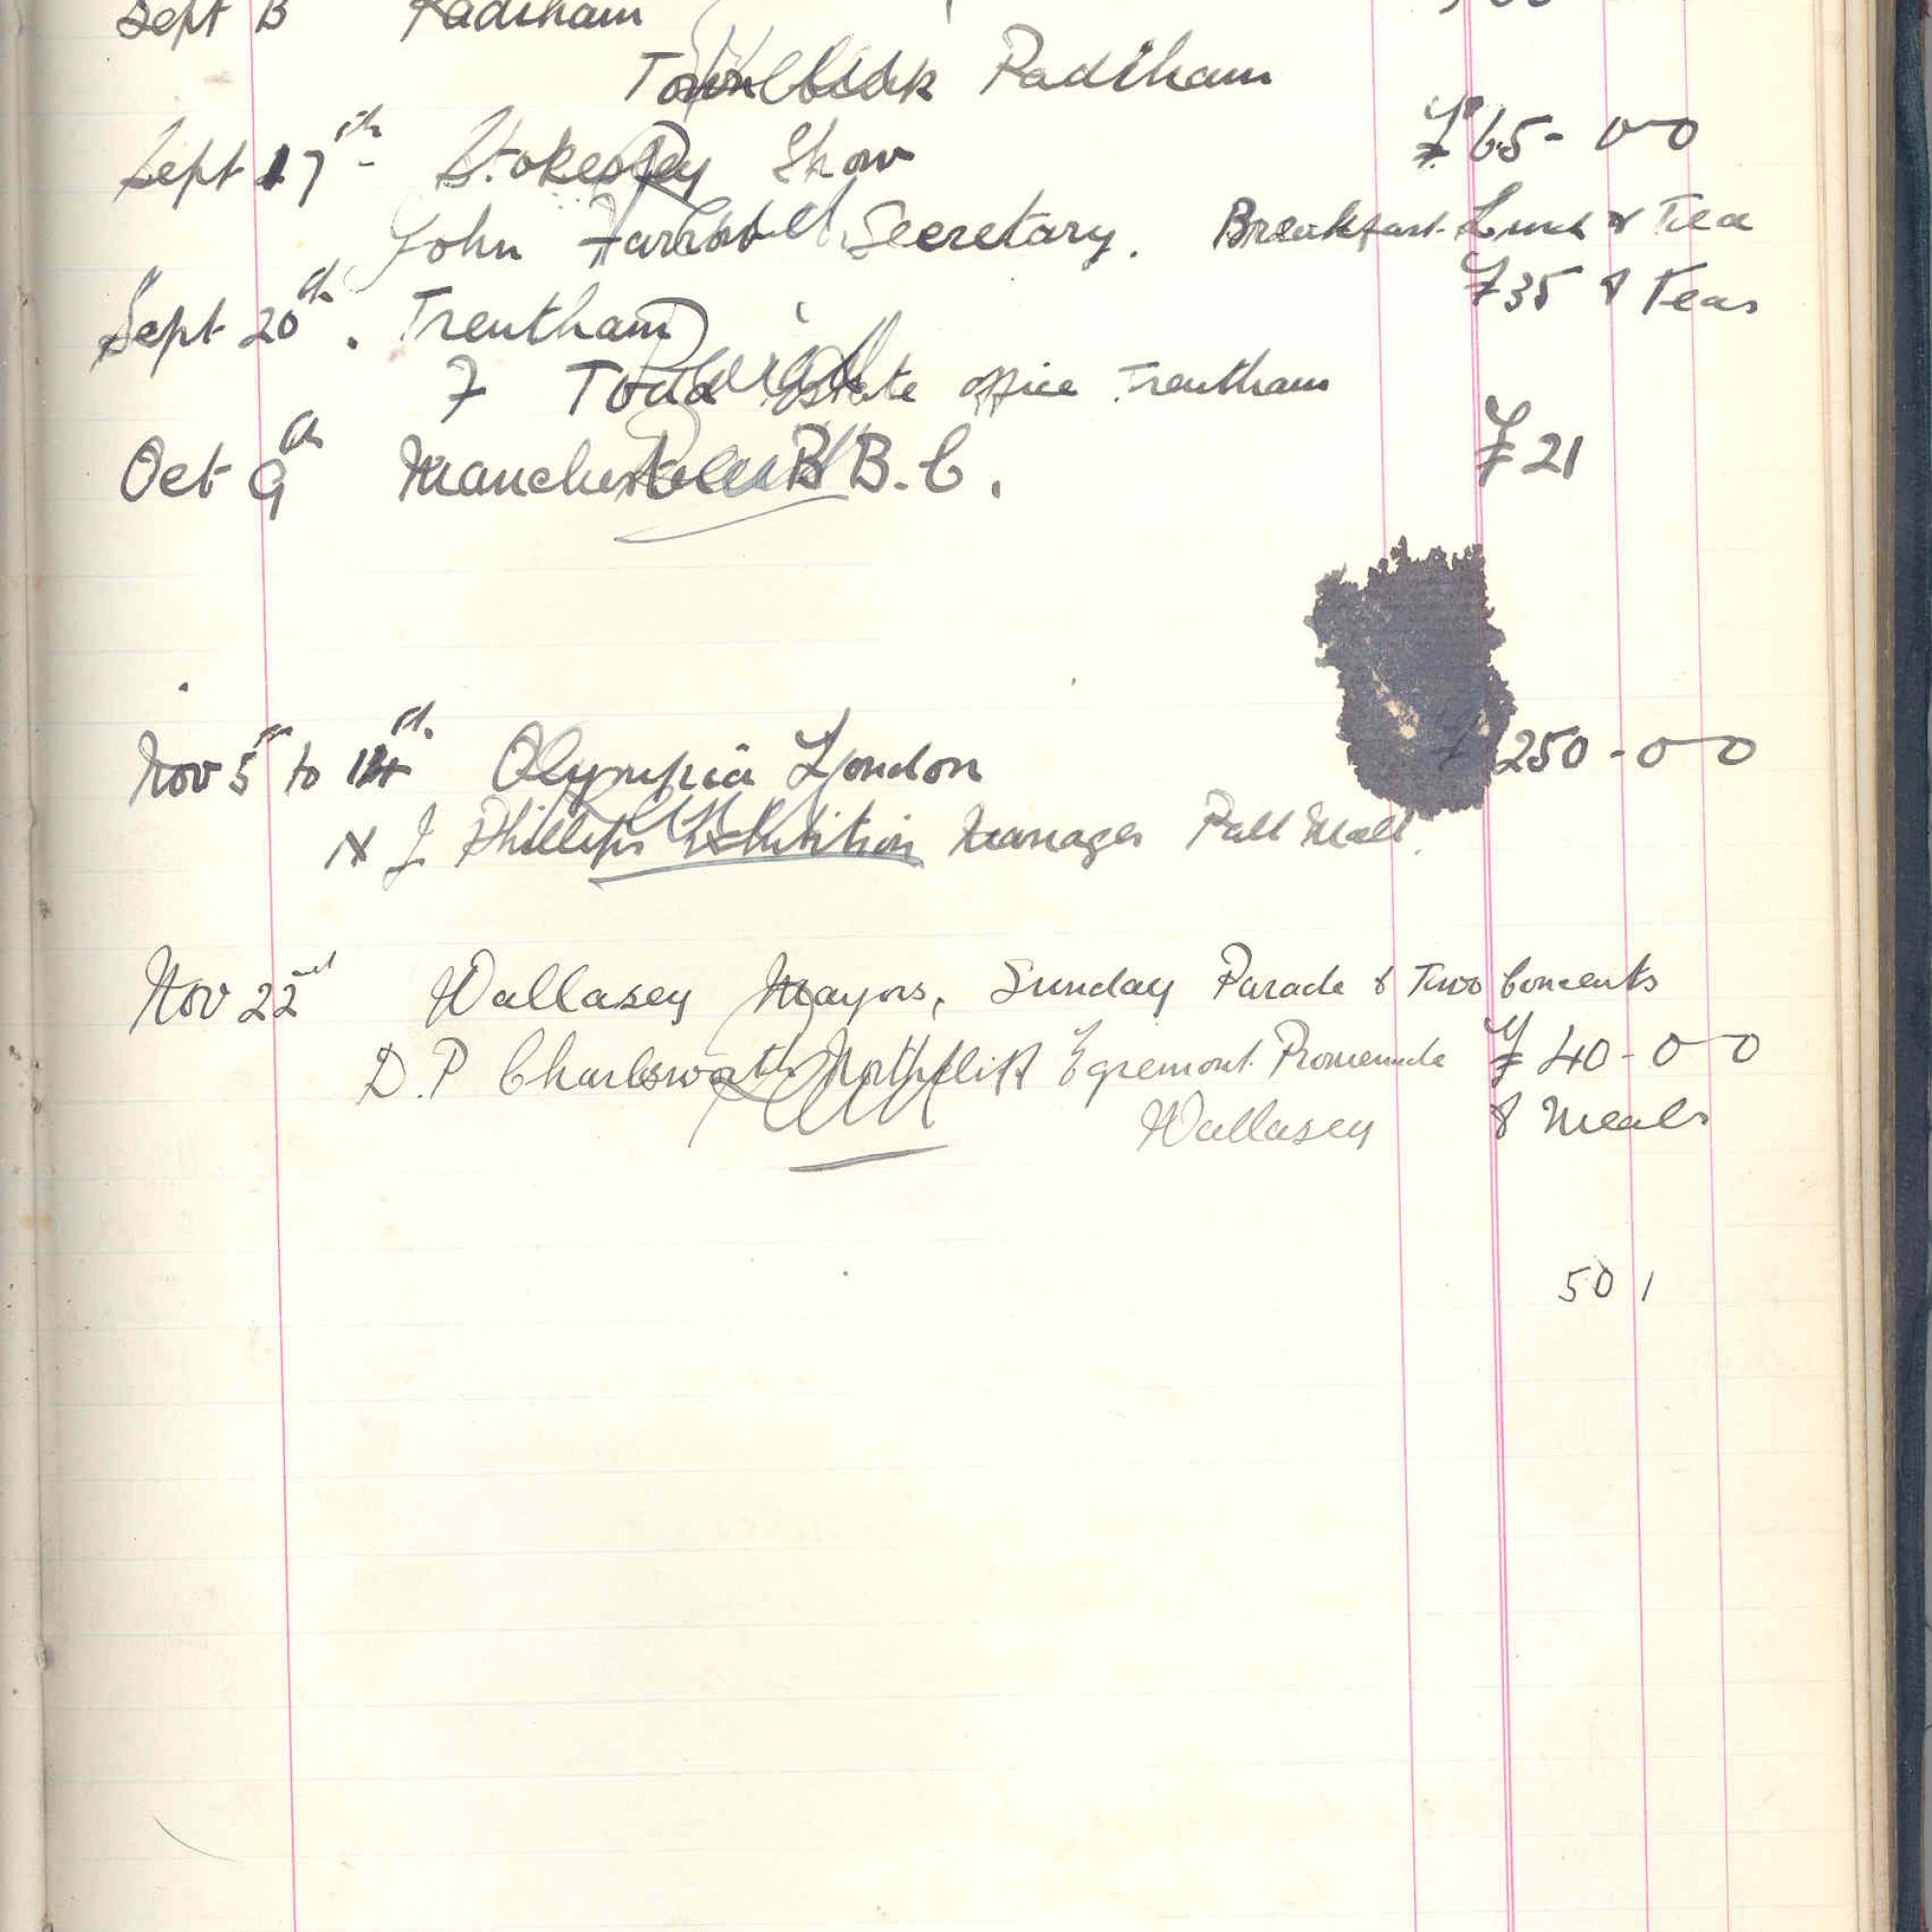 Sept 13 Padiham
Town Clerk Padiham
Sept 17th Stokesley Show £65-0-0
John Farrow Secretary. Breakfast Lunch & Tea
Sept 20th. Trentham £35 & Teas
F Todd Estate office Trentham
Oct 9th Manchester B B.C. £21
Nov 5th to 14th Olympia London £250-0-0
N J Phillips Exhibition Manager Pall Mall.
Nov 22nd Wallasey Mayors, Sunday Parade & Two Concerts
D.P Charlsworth Northcliff Egremont Promenade £40-0-0
Wallasey & Meals
501